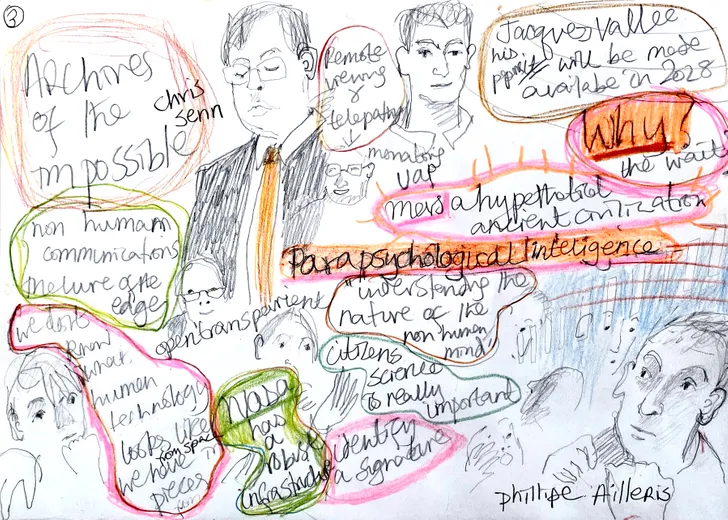 3
Archives
of the
impossible
chris
senn
Remote
viewing
&
telepathy
Jacques Vallee
his
will be made
availabe in 2028
Why?
the wait
monitoring
UAP
mars a hypethotical
ancient civilization
non human
communications
the lure of the
edge
parapsychological inteligence
"understanding the
nature of the
non human
mind"
open transparient
we dont
know
what
human
technology
looks like
we have
non space
in
pieces
citizens
science
is really
important
NASA
has
a
robust
infrastructure
identify
a signature
phillipe Ailleris